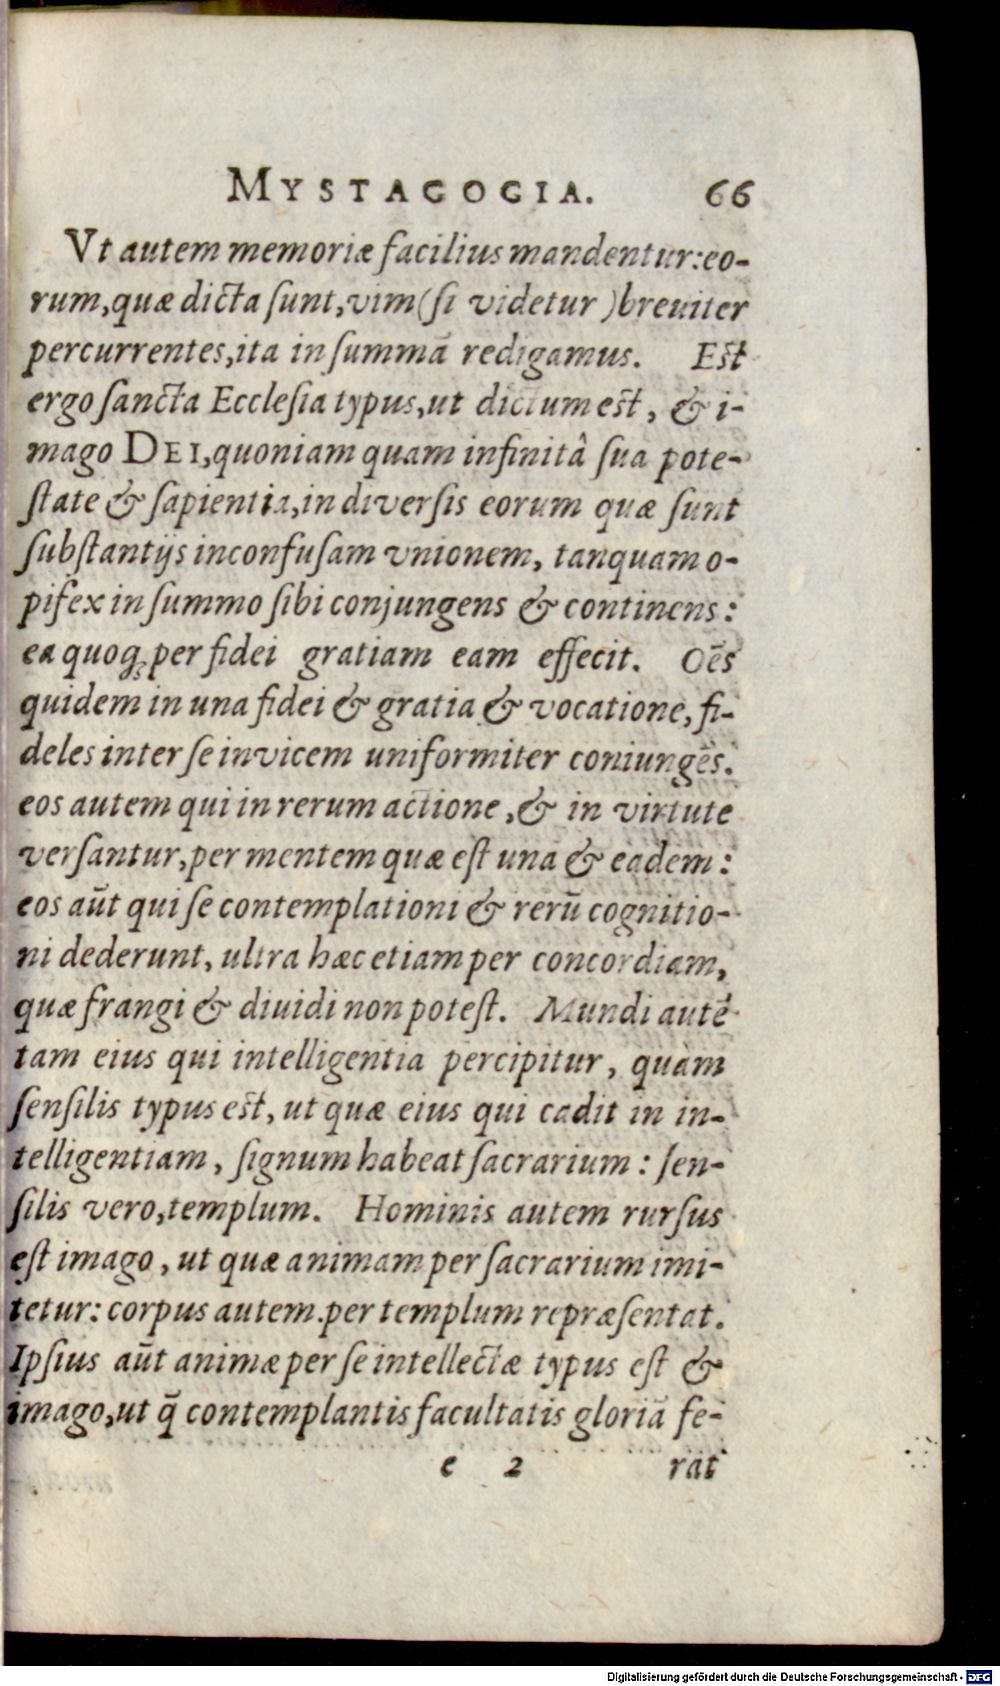 MYSTAGOGIA. 66
Vt autem memoriæ facilius mandentur: eo-
rum, quæ dicta ſunt, vim (ſi videtur) breuiter
percurrentes, ita in ſummā redigamus. Eſt
ergo ſancta Eccleſia typus, ut dictum eſt, & i-
mago DEI, quoniam quam infinitâ ſua pote-
ſtate & ſapientia, in diverſis eorum quæ ſunt
ſubſtantijs inconfuſam vnionem, tanquam o-
pifex in ſummo ſibi conjungens & continens:
ea quoq; per fidei gratiam eam effecit. Oēs
quidem in una fidei & gratia & vocatione, fi-
deles inter ſe invicem uniformiter coniungēs.
eos autem qui in rerum actione, & in virtute
verſantur, per mentem quæ eſt una & eadem:
eos aūt qui ſe contemplationi & rerū cognitio-
ni dederunt, ultra hæc etiam per concordiam,
quæ frangi & diuidi non poteſt. Mundi autē
tam eius qui intelligentia percipitur, quàm
ſenſilis typus eſt, ut quæ eius qui cadit in in-
telligentiam, ſignum habeat ſacrarium: ſen-
ſilis vero, templum. Hominis autem rurſus
eſt imago, ut quæ animam per ſacrarium imi-
tetur: corpus autem per templum repræſentat.
Ipſius aūt animæ per ſe intellectæ typus eſt &
imago, ut q̄ contemplantis facultatis gloriā fe-
e 2 rat
Digitalisierung gefördert durch die Deutsche Forschungsgemeinschaft - DFG